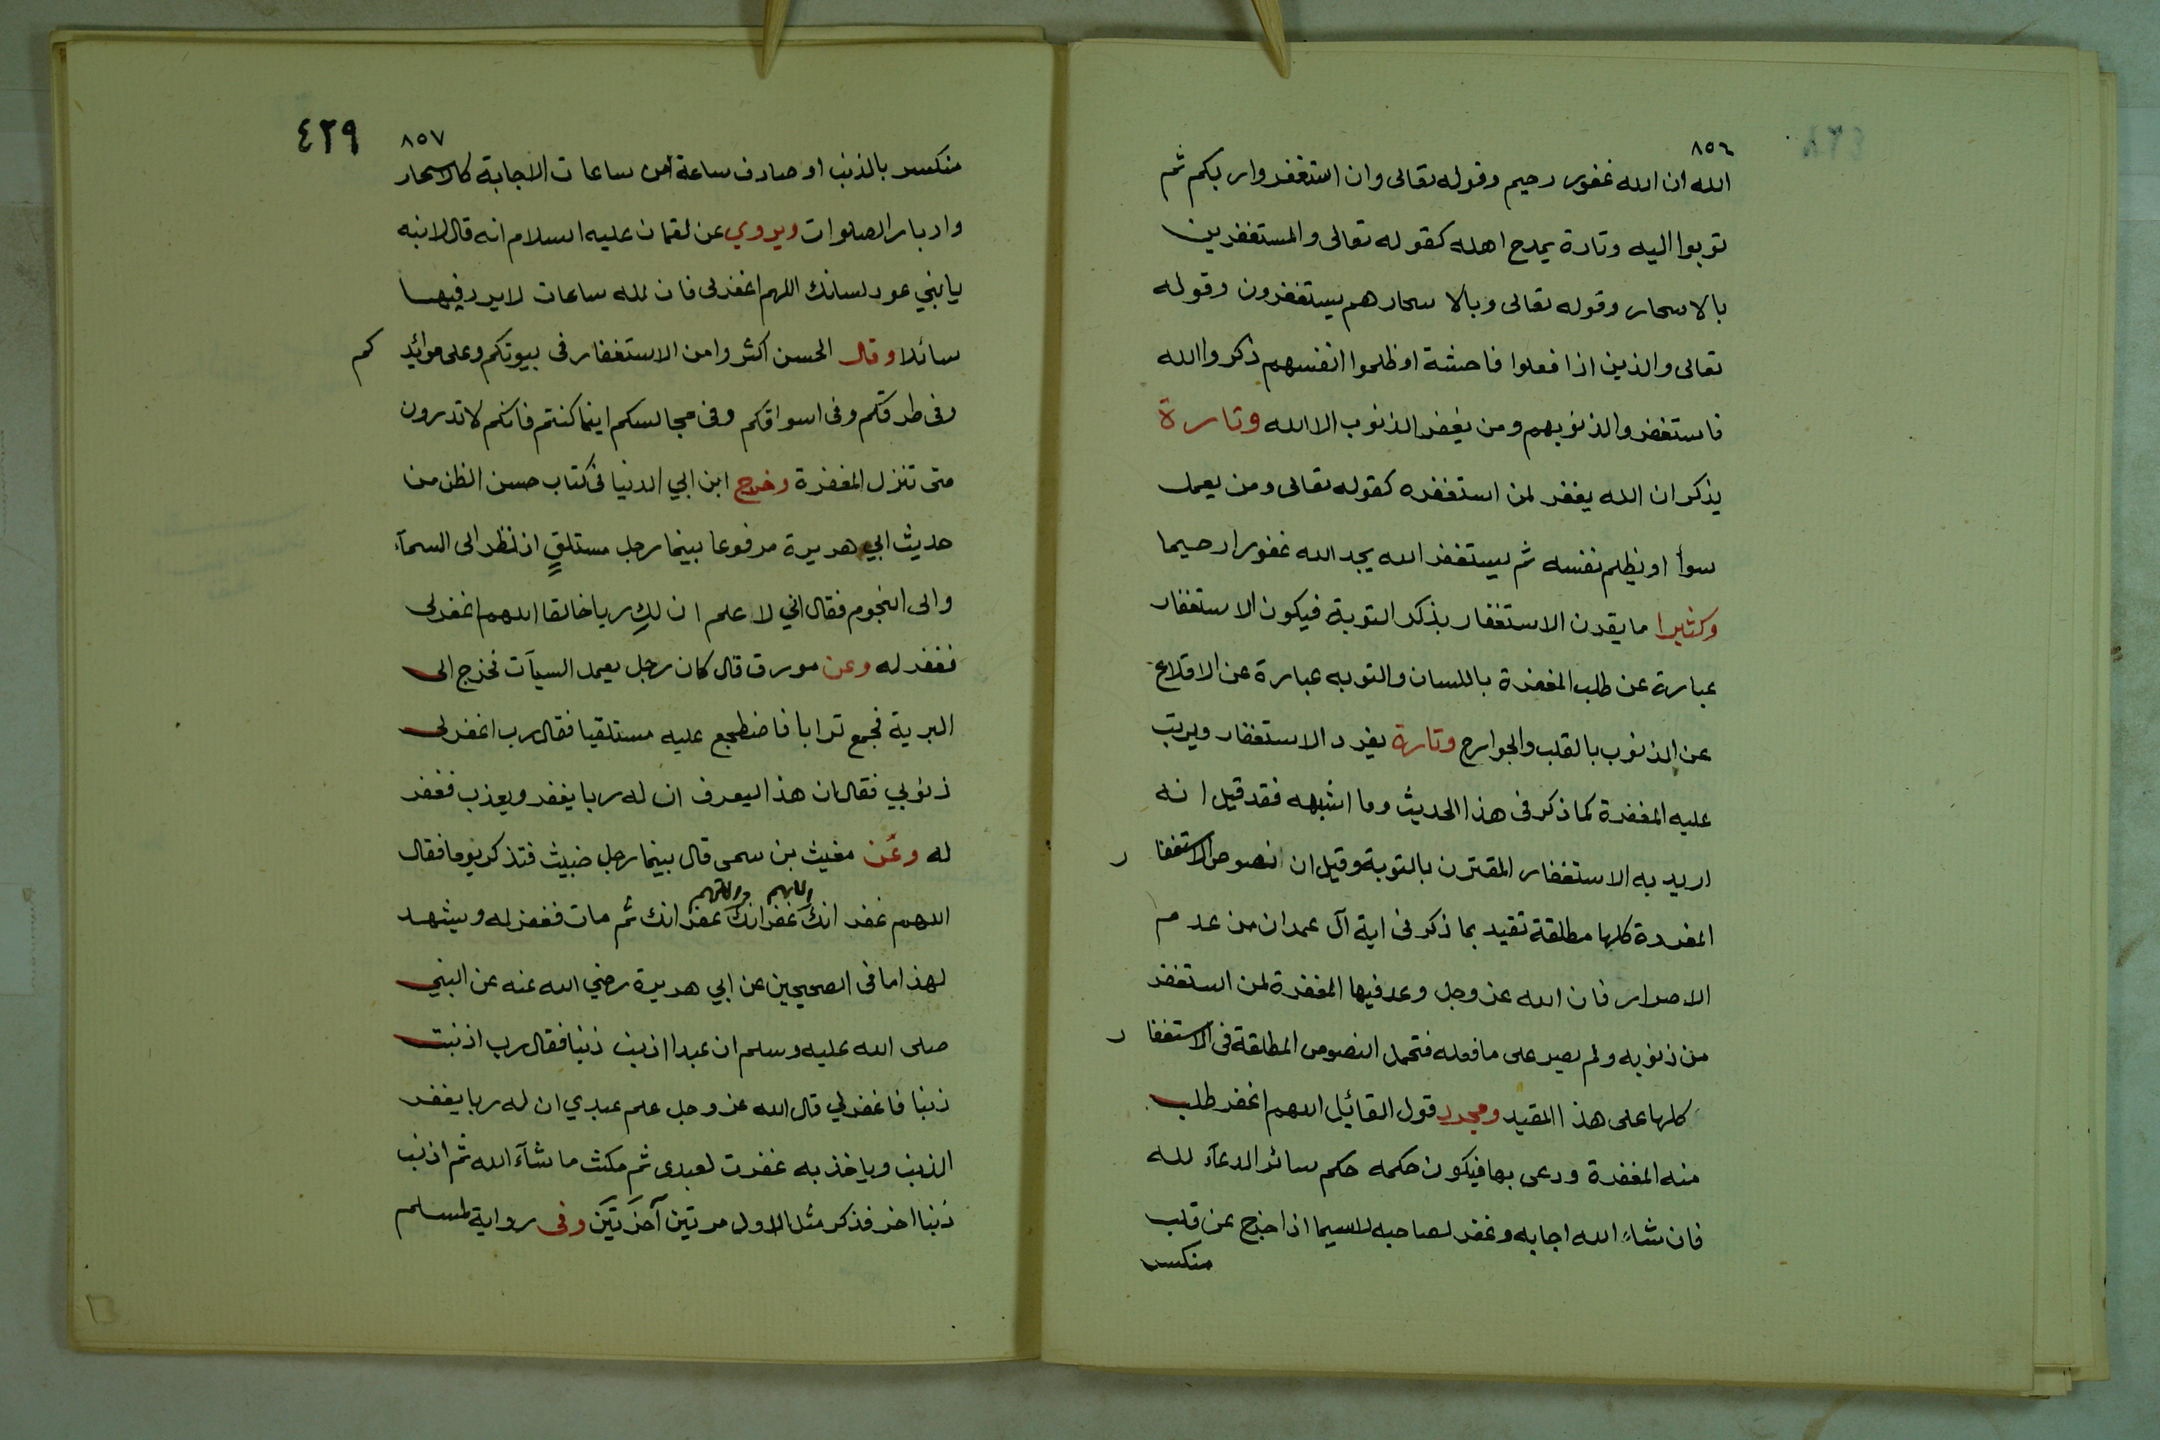 ٨٥٦
الله ان الله غفور رحيم وقوله تعالى وان استغفروا ربكم ثم
توبوا اليه وتارة يمدح اهله كقوله تعالى والمستغفرين
بالاسحار وقوله تعالى وبالاسحار هم يستغفرون وقوله
تعالى والذين اذا فعلوا فاحشة او ظلموا انفسهم ذكروا الله
فاستغفروا لذنوبهم ومن يغفر الذنوب الا الله وتارة
يذكر ان الله يغفر لمن استغفره كقوله تعالى ومن يعمل
سوأ او يظلم نفسه ثم يستغفر الله يجد الله غفورا رحيما
وكثيرا ما يقرن الاستغفار بذكر التوبة فيكون الاستغفار
عبارة عن طلب المغفرة باللسان والتوبه عبارة عن الاقلاع
عن الذنوب بالقلب والجوارح وتارة يفرد الاستغفار ويرتب
عليه المغفرة كما ذكر في هذا الحديث وما اشبهه فقد قيل انه
اريد به الاستغفار المقترن بالتوبة وقيل ان نصوص الاستغفار
المفردة كلها مطلقة تقيد بما ذكر في اية آل عمران من عدم
الاصرار فان الله عز وجل وعد فيها المغفرة لمن استغفر
من ذنوبه ولم يصر على ما فعله فتحمل النصوص المطلقة في الاستغفار
كلها على هذا المقيد ومجرد قول القائل اللهم اغفر طلب
منه المغفرة ودعى بها فيكون حكمه حكم سائر الدعاء لله
فان شاء الله اجابه وغفر لصاحبه لاسيما اذا خرج عن قلب
منكسر
٤٢٩
٨٥٧
منكسر بالذنب او صادف ساعة من ساعات الاجابة كالاسحار
وادبار الصلوات ويروي عن لقمان عليه السلام انه قال لابنه
يا بني عود لسانك اللهم اغفر لي فان لله ساعات لا يرد فيها
سائلا وقال الحسن اكثروا من الاستغفار في بيوتكم وعلى موائدكم
وفي طرقكم وفي اسواقكم وفي مجالسكم اينما كنتم فانكم لا تدرون
متى تنزل المغفرة وخرج ابن ابي الدنيا في كتاب حسن الظن من
حديث ابي هريرة مرفوعا بينما رجل مستلقٍ اذ نظر الى السماء
والى النجوم فقال اني لاعلم ان لكِ ربا خالقا اللهم اغفر لي
فغفر له وعن مورق قال كان رجل يعمل السيآت فخرج الى
البرية فجمع ترابا فاضطجع عليه مستلقيا فقال رب اغفر لي
ذنوبي فقال ان هذا ليعرف ان له ربا يغفر ويعذب فغفر
له وعن مغيث بن سمى قال بينما رجل خبيث فتذكر يوما فقال
اللهم غفرانك غفرانك غفرانك ثم مات فغفر له ويشهد
لهذا ما في الصحيحين عن ابي هريرة رضي الله عنه عن النبي
صلى الله عليه وسلم ان عبدا اذنب ذنبا فقال رب اذنبت
ذنبا فاغفر لي قال الله عز وجل علم عبدي ان له ربا يغفر
الذنب وياخذ به غفرت لعبدي ثم مكث ما شاء الله ثم اذنب
ذنبا اخر فذكر مثل الاول مرتين آخرَتَين وفي رواية لمسلم